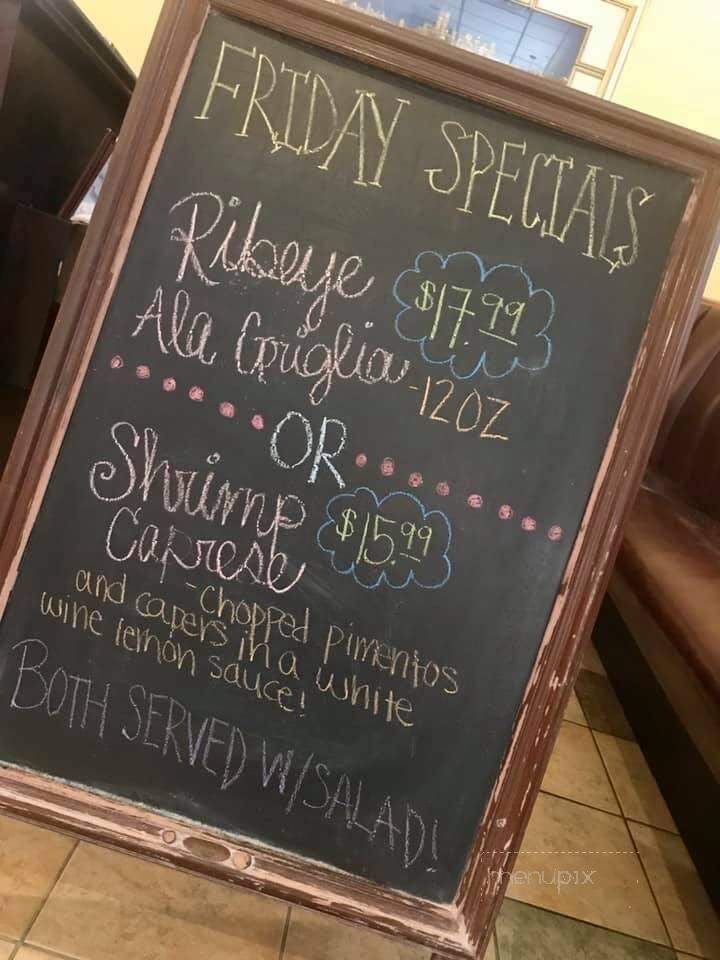 FRIDAY SPECIALS
Ribeye
Ala Goriglia
$17.99
-12OZ
OR
Shrimp
Caprese
$15.99
-chopped pimentos
and capers in a white
wine lemon sauce!
BOTH SERVED W/SALAD!
menupix